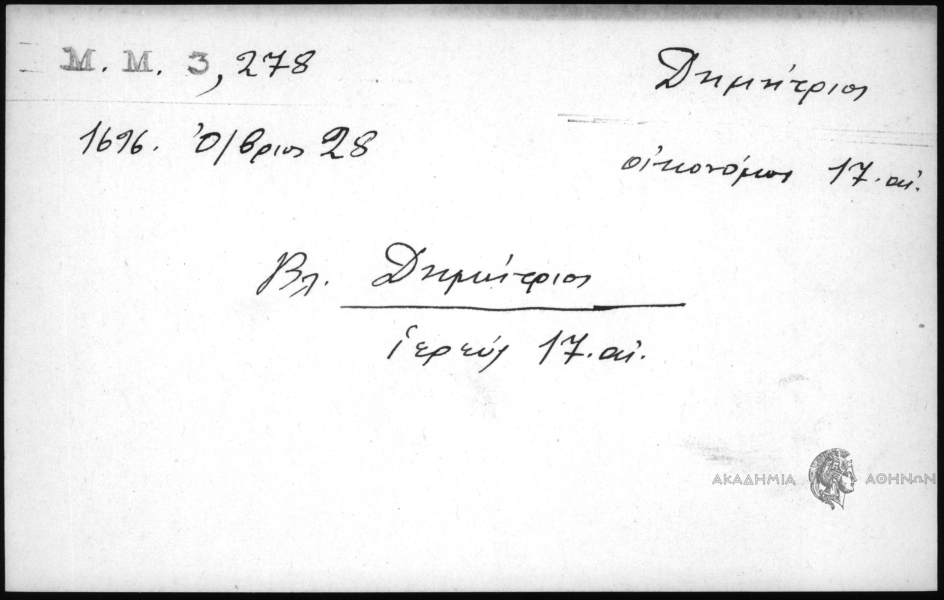 Μ. Μ. 3, 278
Δημήτριος
1696. Ὀ/βριος 28
οἰκονόμος 17. αἰ.
Βλ. Δημήτριος
ἱερεύς 17. αἰ.
ΑΚΑΔΗΜΙΑ ΑΘΗΝΩΝ